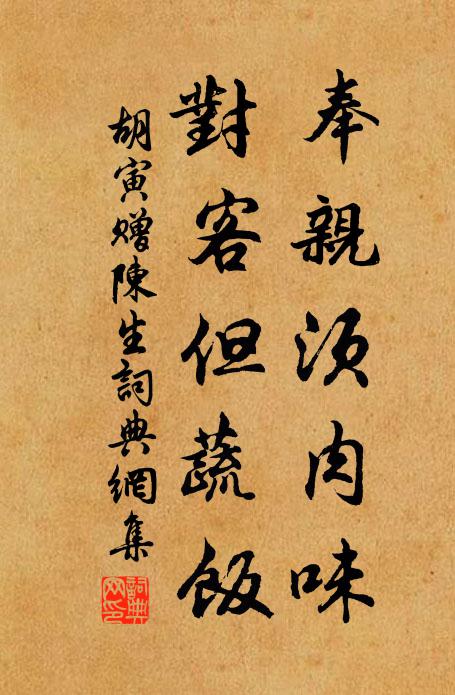 奉親須肉味
對客但蔬飯
胡寅贈陳生詞典網集
詞典
网印